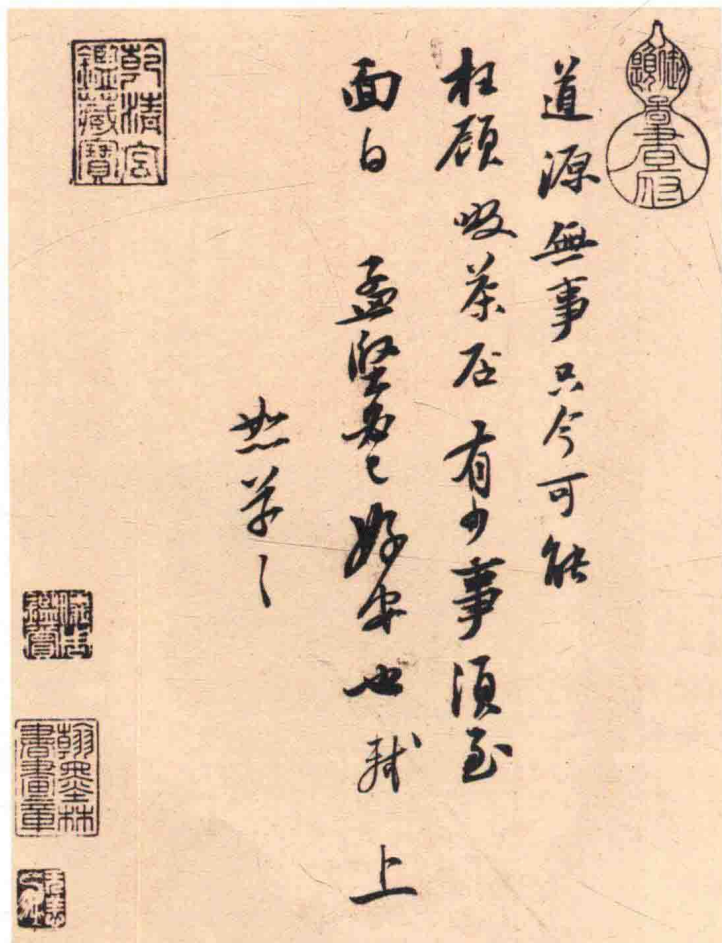 道源無事只今可能
枉顧啜茶否有少事須至
面白 孟堅必已好安也軾 上
恕草〻
乾清宮
鑑藏寶
翰墨林
書畫章